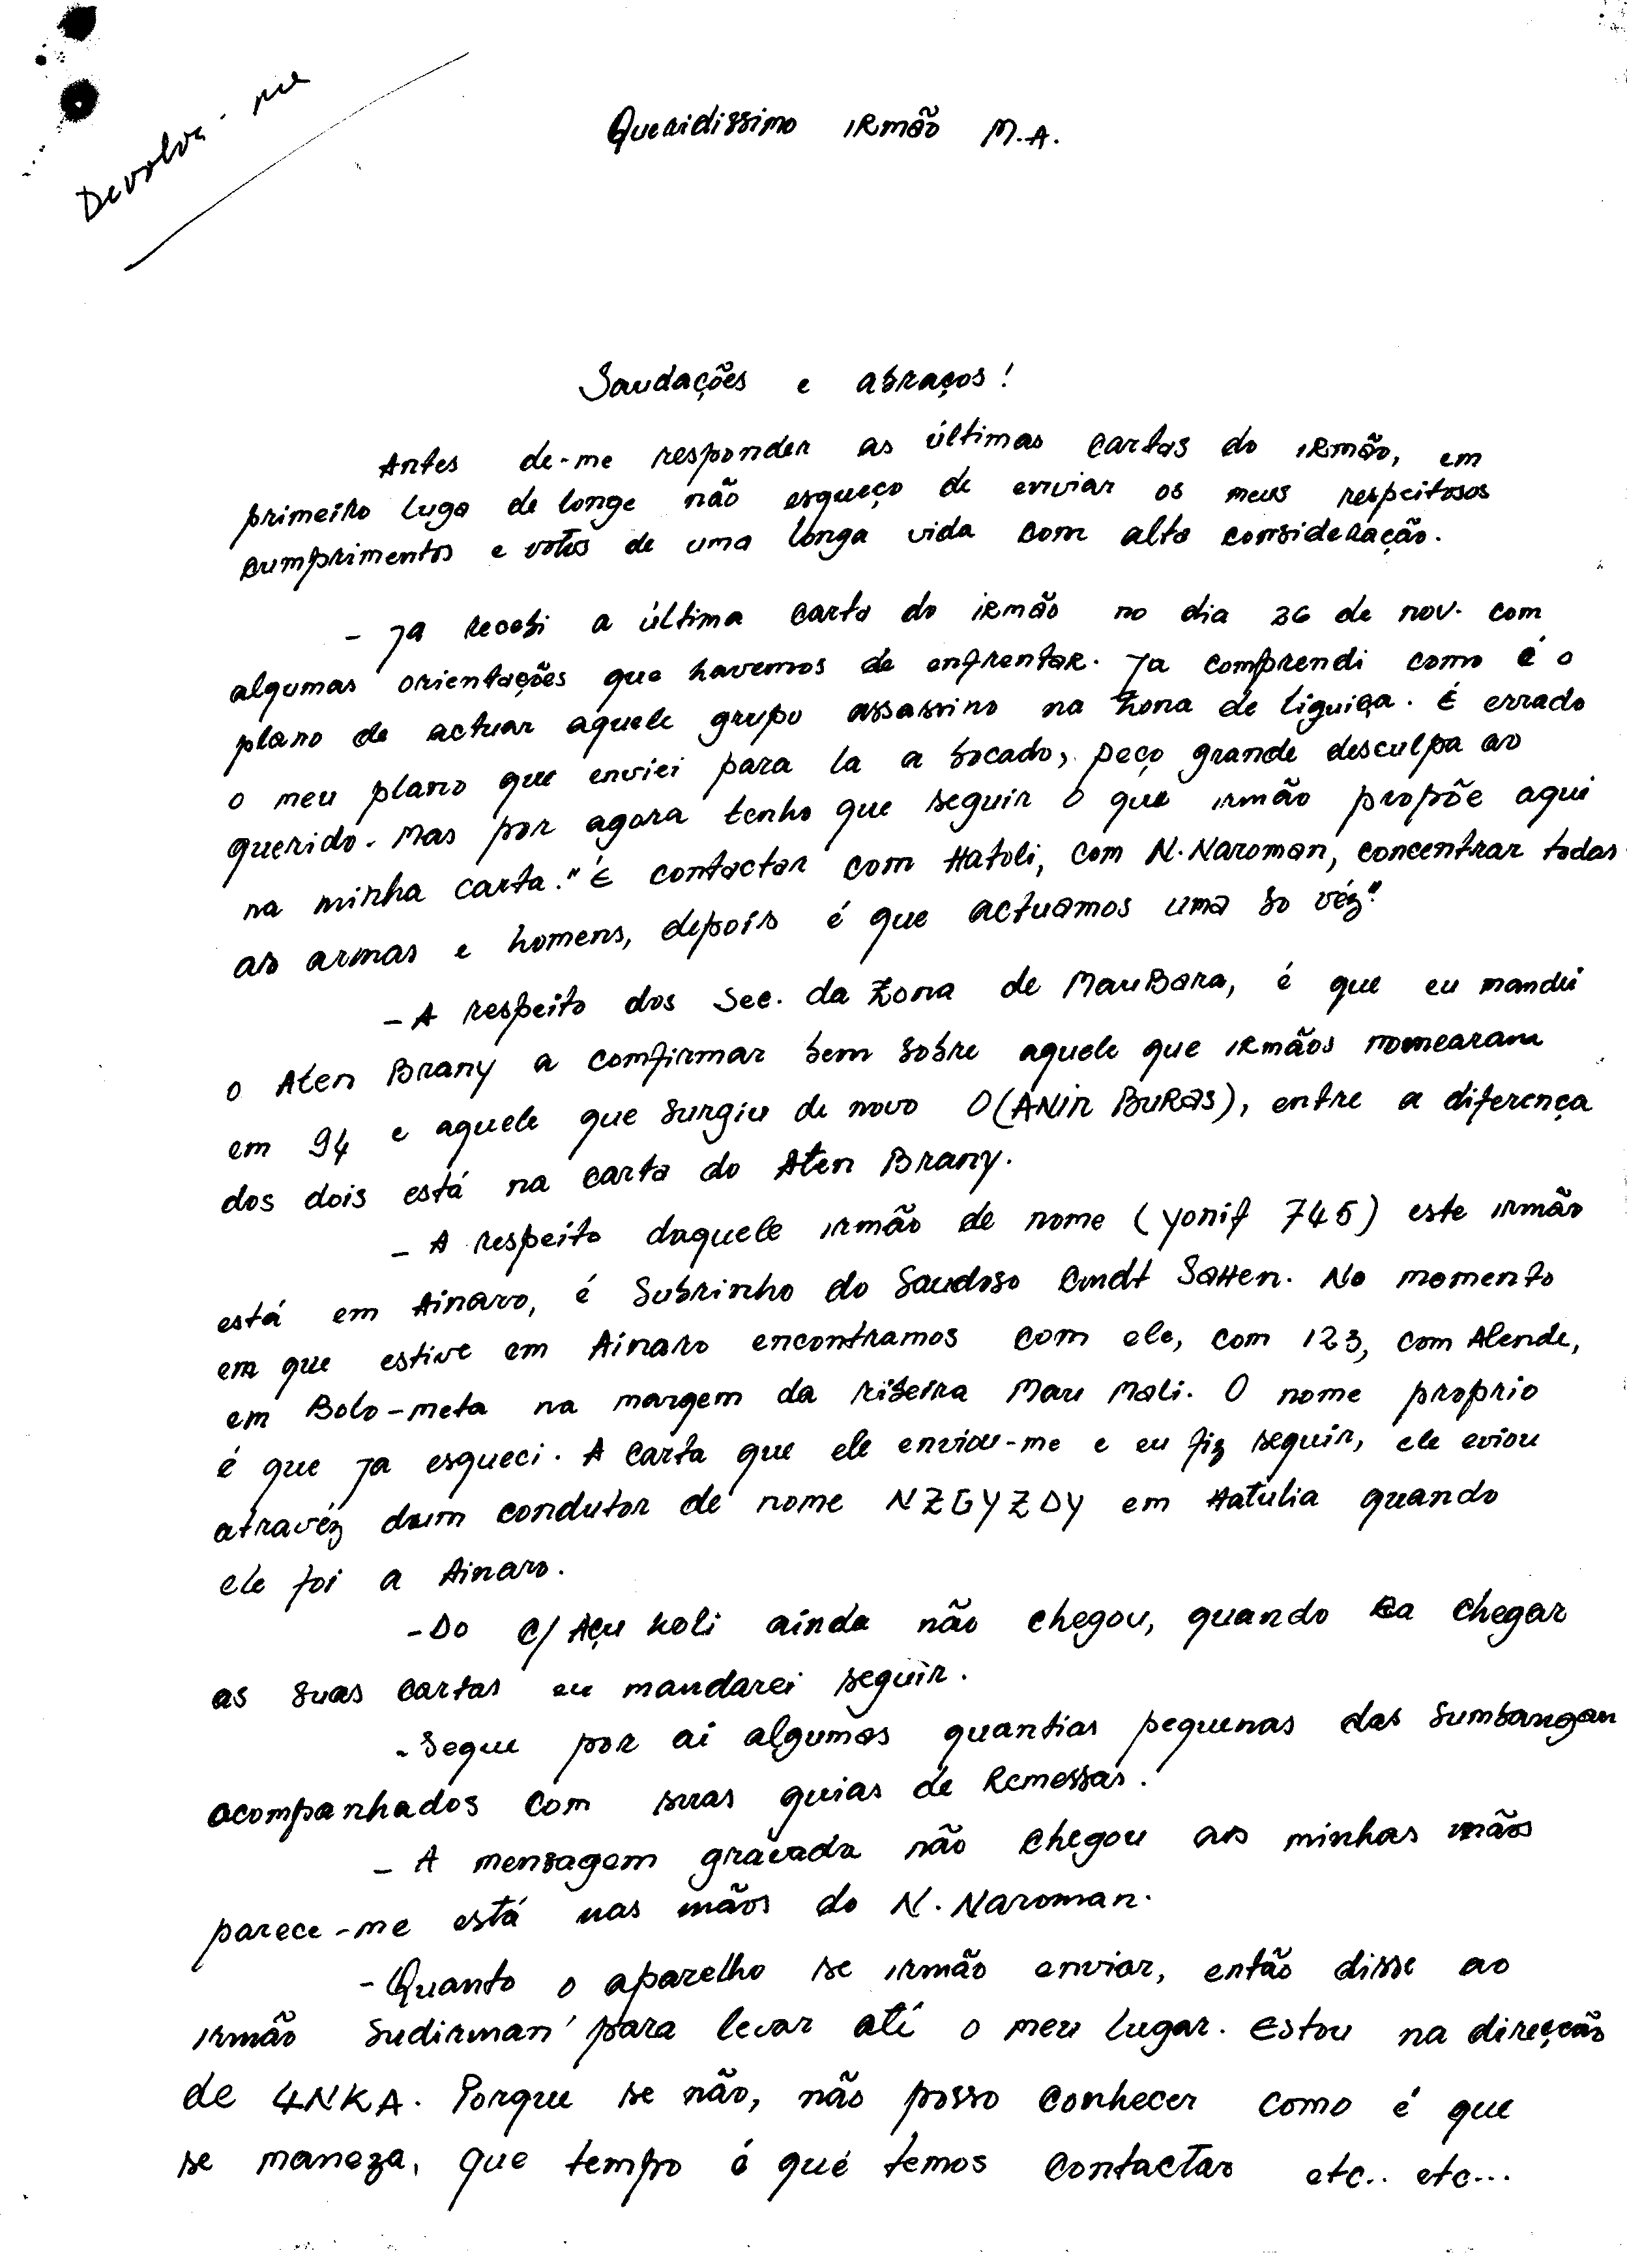 Devolva-me
Queridissimo IRmão M.A.
Saudações e abraços!
Antes de-me responder as últimas cartas do irmão, em
primeiro luga de longe não esqueço de enviar os meus respeitosos
cumprimentos e votos de uma longa vida com alta consideração.
- Ja recebi a última carta do irmão no dia 26 de nov. com
algumas orientações que havemos de enfrentar. Ja comprendi como é o
plano de actuar aquele grupo assassino na Zona de Liguiça. É errado
o meu plano que enviei para la a bocado, peço grande desculpa ao
querido. Mas por agora tenho que seguir o que irmão propõe aqui
na minha carta. "É contactar com Hatoli, com N. Naroman, concentrar todas
as armas e homens, depois é que actuamos uma so véz"
- A respeito dos Sec. da Zona de MauBara, é que eu mandei
o Aten Brany a comfirmar bem sobre aquele que irmãos nomearam
em 94 e aquele que surgiu de novo O (ANIR BURAS), entre a diferença
dos dois está na carta do Aten Brany.
- A respeito daquele irmão de nome (yonif 745) este irmão
está em Ainaro, é Subrinho do Saudoso Cmdt Satten. No momento
em que estive em Ainaro encontramos com ele, com 123, com Alende,
em Bolo-meta na margem da ribeira Mau Mali. O nome proprio
é que ja esqueci. A carta que ele enviou-me e eu fiz seguir, ele eviou
atravéz dum condutor de nome NZGYZDY em Hatulia quando
ele foi a Ainaro.
- Do C/ Açu Koli ainda não chegou, quando ca chegar
as suas cartas eu mandarei seguir.
- Segue por ai algumas quantias pequenas das Sumbangan
acompanhados com suas guias de Remessas.
- A mensagem gravada não chegou as minhas mãos
parece-me está nas mãos do N. Naroman.
- Quanto o aparelho se irmão enviar, então disse ao
irmão Sudirman para levar até o meu lugar. Estou na direcção
de 4NKA. Porque se não, não posso conhecer como é que
se maneza, que tempo é que temos contactar etc.. etc...